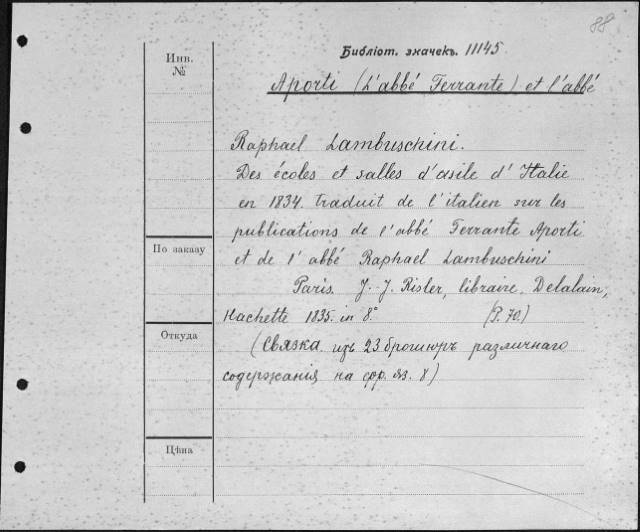 88
Библіот. значекъ. 11145
Инв.
№
Aporti (L'abbé Ferrante) et l'abbé
Raphael Lambuschini.
Des écoles et salles d'asile d'Italie
en 1834. traduit de l'italien sur les
publications de l'abbé Ferrante Aporti
et de l'abbé Raphael Lambuschini
По заказу
Paris. J. J. Risler, libraire. Delalain,
Hachette 1835. in 8.° (P. 70.)
Откуда
(Связка изъ 23 брошюръ различнаго
содержанія на фр. яз. 8)
Цѣна